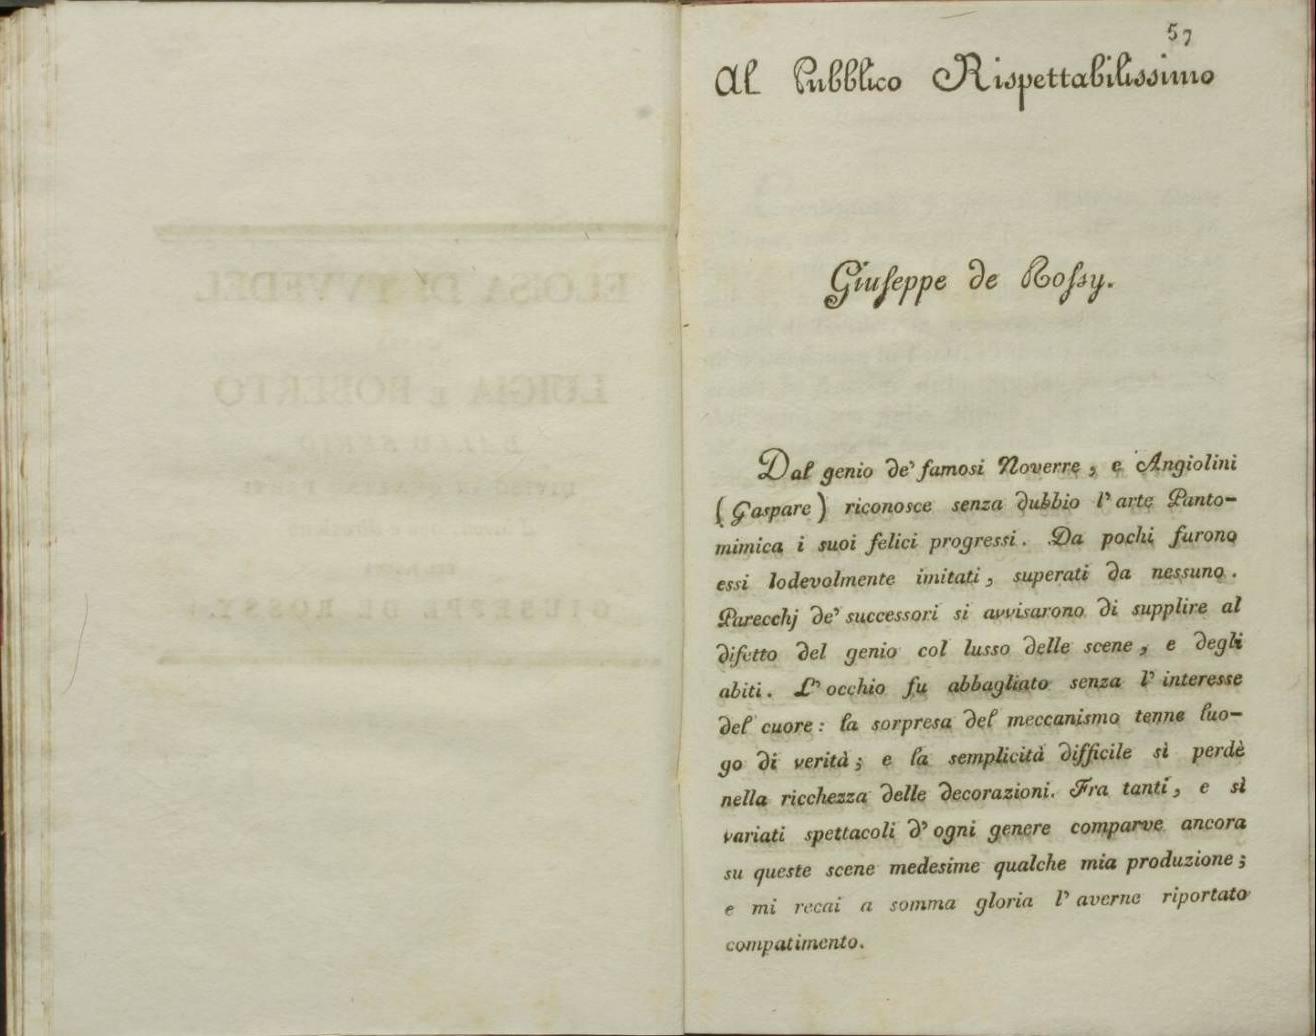 57
Al Pubblico Rispettabilissimo
Giuseppe de Rossy.
Dal genio de' famosi Noverre, e Angiolini
(Gaspare) riconosce senza dubbio l'arte Panto-
mimica i suoi felici progressi. Da pochi furono
essi lodevolmente imitati, superati da nessuno.
Parecchj de' successori si avvisarono di supplire al
difetto del genio col lusso delle scene, e degli
abiti. L'occhio fu abbagliato senza l'interesse
del cuore: la sorpresa del meccanismo tenne luo-
go di verità; e la semplicità difficile sì perdè
nella ricchezza delle decorazioni. Fra tanti, e sì
variati spettacoli d'ogni genere comparve ancora
su queste scene medesime qualche mia produzione;
e mi recai a somma gloria l'averne riportato
compatimento.